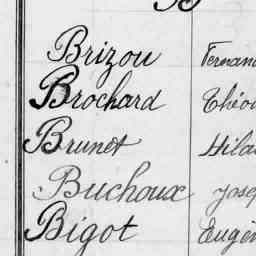 B
Brizou Fernan
Brochard Théo
Brunet Hila
Buchoux Josep
Bigot Eugèn